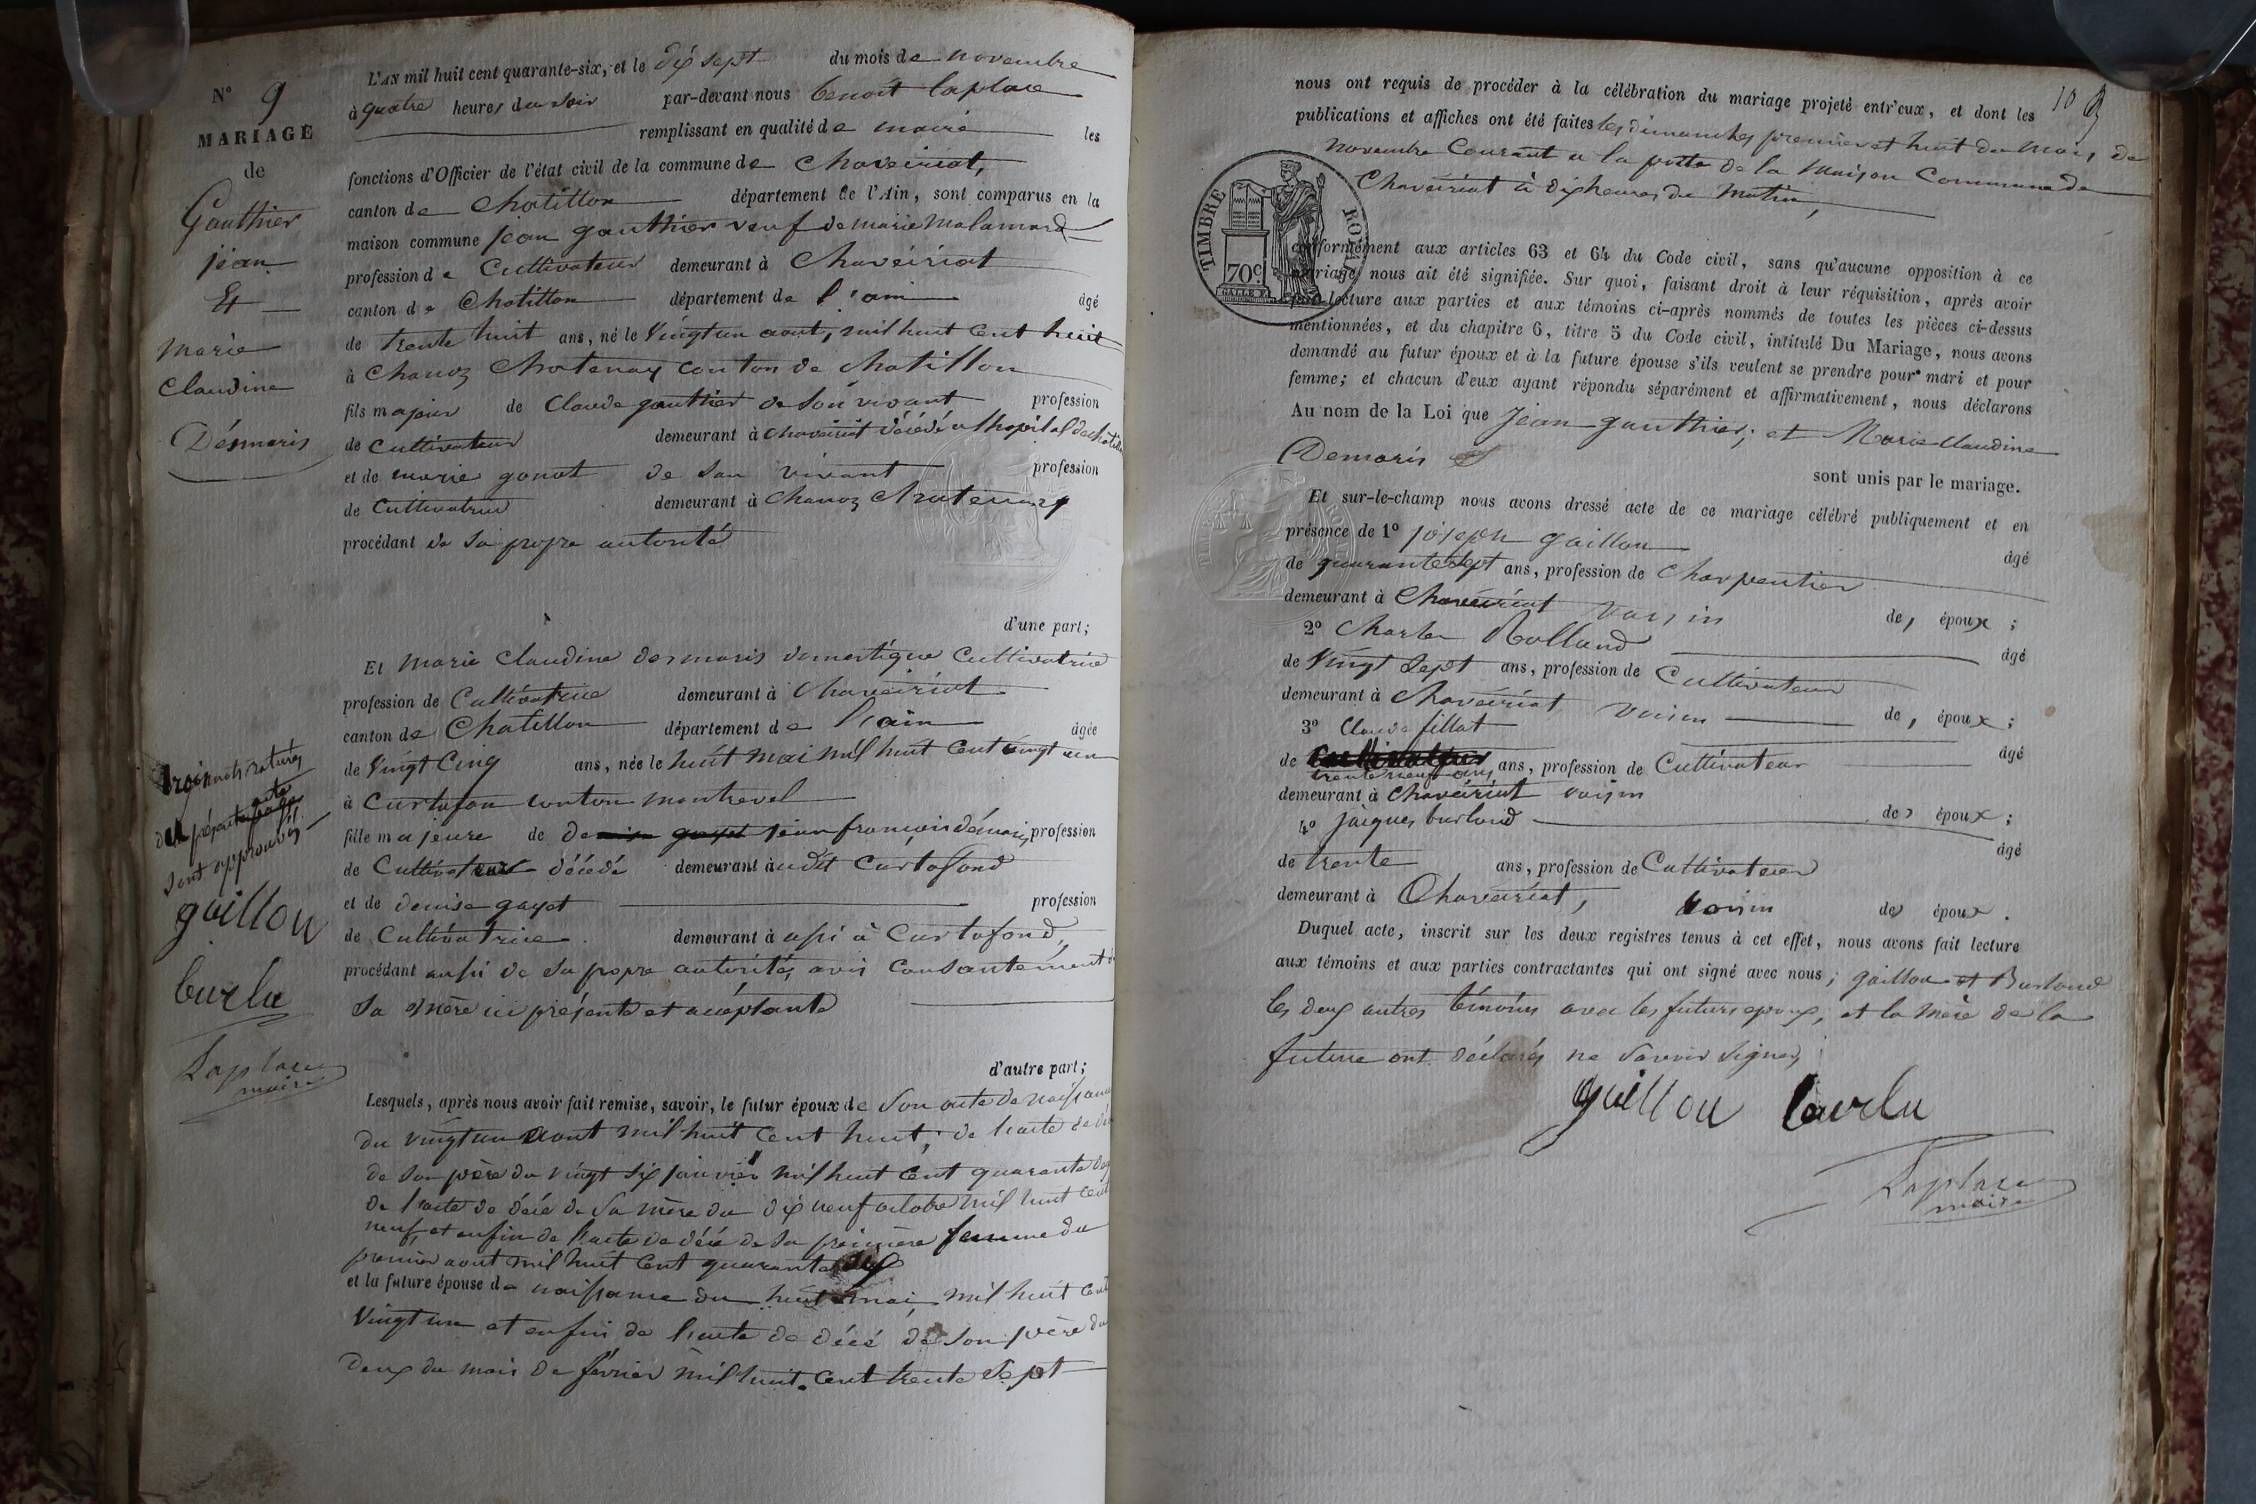 N° 9
MARIAGE
de
Gauthier
jean
Et
Marie
Claudine
Désmaris
L'AN mil huit cent quarante-six, et le dix sept du mois de novembre
à quatre heures du soir par-devant nous benoit laplace
remplissant en qualité de maire les
fonctions d'Officier de l'état civil de la commune de Chaveiriat,
canton de Chatillon département de l'Ain, sont comparus en la
maison commune jean gauthier veuf de marie Malamard
profession de Cultivateur demeurant à Chaveiriat
canton de Chatillon département de l'ain âgé
de trente huit ans, né le Vingt un aout, mil huit Cent huit
à Chanoz Chatenay Conton de Chatillon
fils majeur de Claude gauthier de Son vivant profession
de Cultivateur demeurant à Chaveiriat décédé a lhopital de chatillon
et de marie gonot de son vivant profession
de Cultivatrice demeurant à Chanoz Chatenay
procédant de Sa propre autorité
d'une part;
Et Marie Claudine desmaris domestique Cultivatrice
profession de Cultivatrice demeurant à Chaveiriat
canton de Chatillon département de l'ain âgée
de Vingt Cinq ans, née le huit mai mil huit Cent vingt un
à Curtafon conton montrevel
fille majeure de denise gayet jean françois démaris, profession
de Cultivateur décédé demeurant audit Curtafond
et de denise gayet profession
de Cultivatrice demeurant à assi à Curtafond,
procédant aussi de Sa propre autorité, avis Consantement de
Sa mère ici présente et acceptante
d'autre part;
trois mots raturés
du présent acte
sont approuvés
gaillon
burlu
Laplace
maire
Lesquels, après nous avoir fait remise, savoir, le futur époux de Son acte de naissance
du vingt un aout mil huit Cent huit, de l'acte de
de Son père du vingt six janvier mil huit Cent quarante
de l'acte de décé de Sa mère du dix neuf octobre mil huit Cent
neuf, et enfin de l'acte de décé de Sa première femme du
premier aout mil huit Cent quarante six
et la future épouse de naissance du huit mai, mil huit Cent
Vingt un et enfin de l'acte de décé de Son père du
Deux du mois de fevrier mil huit Cent trente Sept
10
nous ont requis de procéder à la célébration du mariage projeté entr'eux, et dont les
publications et affiches ont été faites les dimanches premier et huit du mois de
Novembre Courant a la porte de la Maison Commune de
Chaveiriat à dix heures du Matin,
TIMBRE ROYAL
70c
GALLE F.
conformément aux articles 63 et 64 du Code civil, sans qu'aucune opposition à ce
mariage nous ait été signifiée. Sur quoi, faisant droit à leur réquisition, après avoir
fait lecture aux parties et aux témoins ci-après nommés de toutes les pièces ci-dessus
mentionnées, et du chapitre 6, titre 5 du Code civil, intitulé Du Mariage, nous avons
demandé au futur époux et à la future épouse s'ils veulent se prendre pour mari et pour
femme; et chacun d'eux ayant répondu séparément et affirmativement, nous déclarons
Au nom de la Loi que Jean gauthier, et Marie Claudine
Demaris
sont unis par le mariage.
Et sur-le-champ nous avons dressé acte de ce mariage célébré publiquement et en
présence de 1° joseph gaillon âgé
de quarante Sept ans, profession de Charpentier
demeurant à Chaveiriat voisin de, époux;
2° Charles Rolland âgé
de Vingt Sept ans, profession de Cultivateur
demeurant à Chaveiriat voisin de, époux;
3° Claude fillat âgé
de Cultivateur ans, profession de Cultivateur
trente neuf ans
demeurant à Chaveiriat voisin de, époux;
4° jacques burland âgé
de trente ans, profession de Cultivateur
demeurant à Chaveiriat, voisin de époux.
Duquel acte, inscrit sur les deux registres tenus à cet effet, nous avons fait lecture
aux témoins et aux parties contractantes qui ont signé avec nous; gaillon et Burland
les deux autres témoins avec les futurs epoux, et la mère de la
future ont déclarés ne Savoir Signer,
gaillon burlu
Laplace
maire